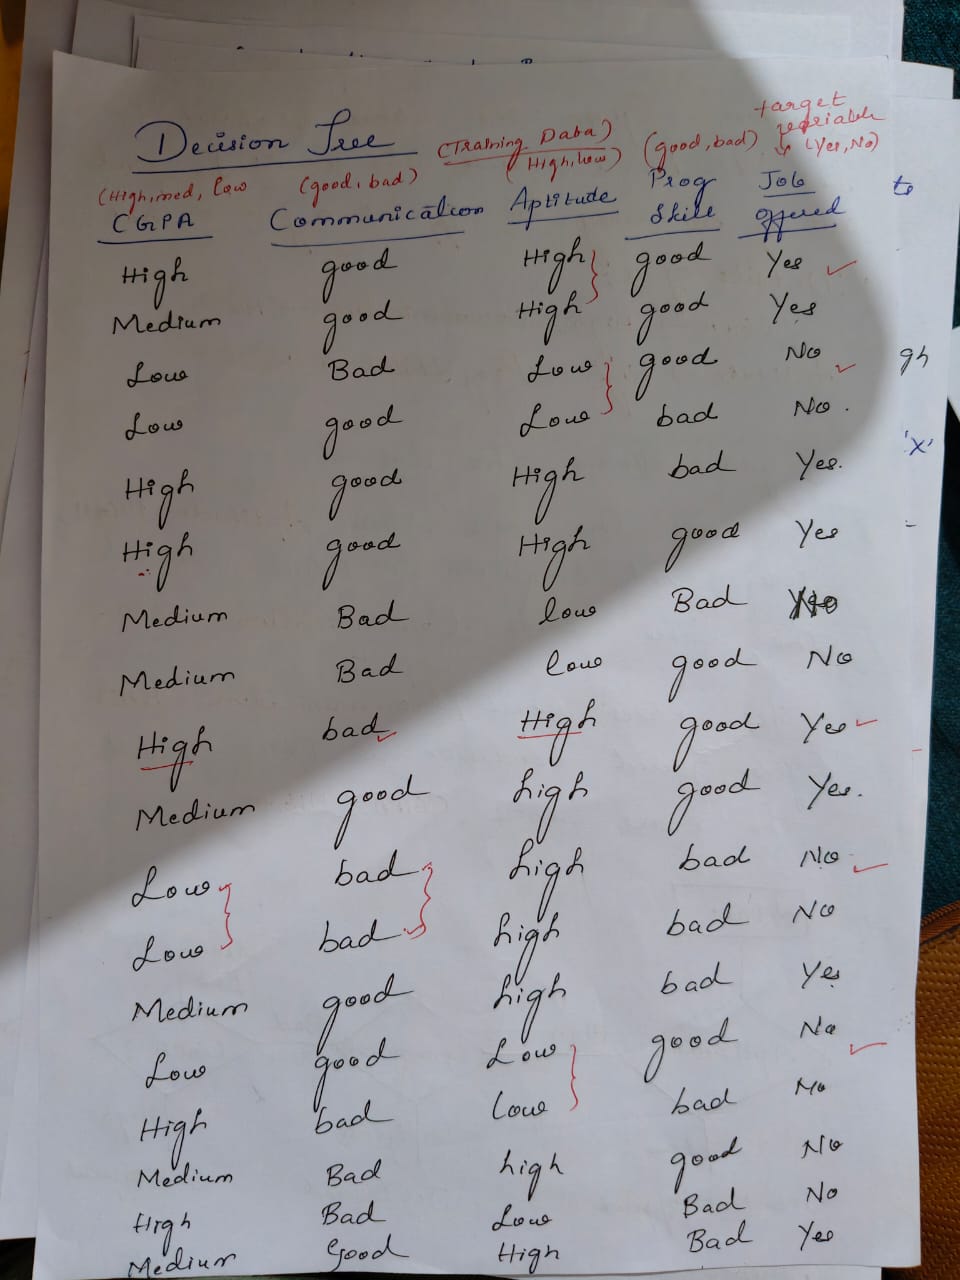 Decision Tree (Training Data) target variable
(High, med, low (good, bad) (High, low) (good, bad) (Yes, No)
CGPA Communication Aptitude Prog Skill Job offered
High good High good Yes
Medium good High good Yes
Low Bad Low good No
Low good Low bad No.
High good High bad Yes.
High good High good Yes
Medium Bad low Bad No
Medium Bad low good No
High bad High good Yes
Medium good high good Yes.
Low bad high bad No
Low bad high bad No
Medium good high bad Yes
Low good Low good No
High bad low bad No
Medium Bad high good No
High Bad Low Bad No
Medium Good High Bad Yes
to
gh
'x'